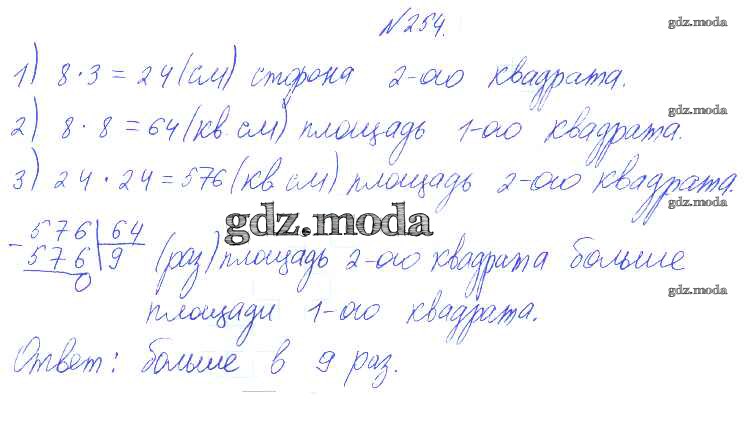 №254.
gdz.moda
1) 8·3=24(см) сторона 2-ого квадрата.
gdz.moda
2) 8·8=64(кв.см) площадь 1-ого квадрата.
gdz.moda
3) 24·24=576(кв см) площадь 2-ого квадрата.
gdz.moda
gdz.moda
-576|64
576|9 (раз) площадь 2-ого квадрита больше
0
gdz.moda
площади 1-ого квадрата.
Ответ: больше в 9 раз.